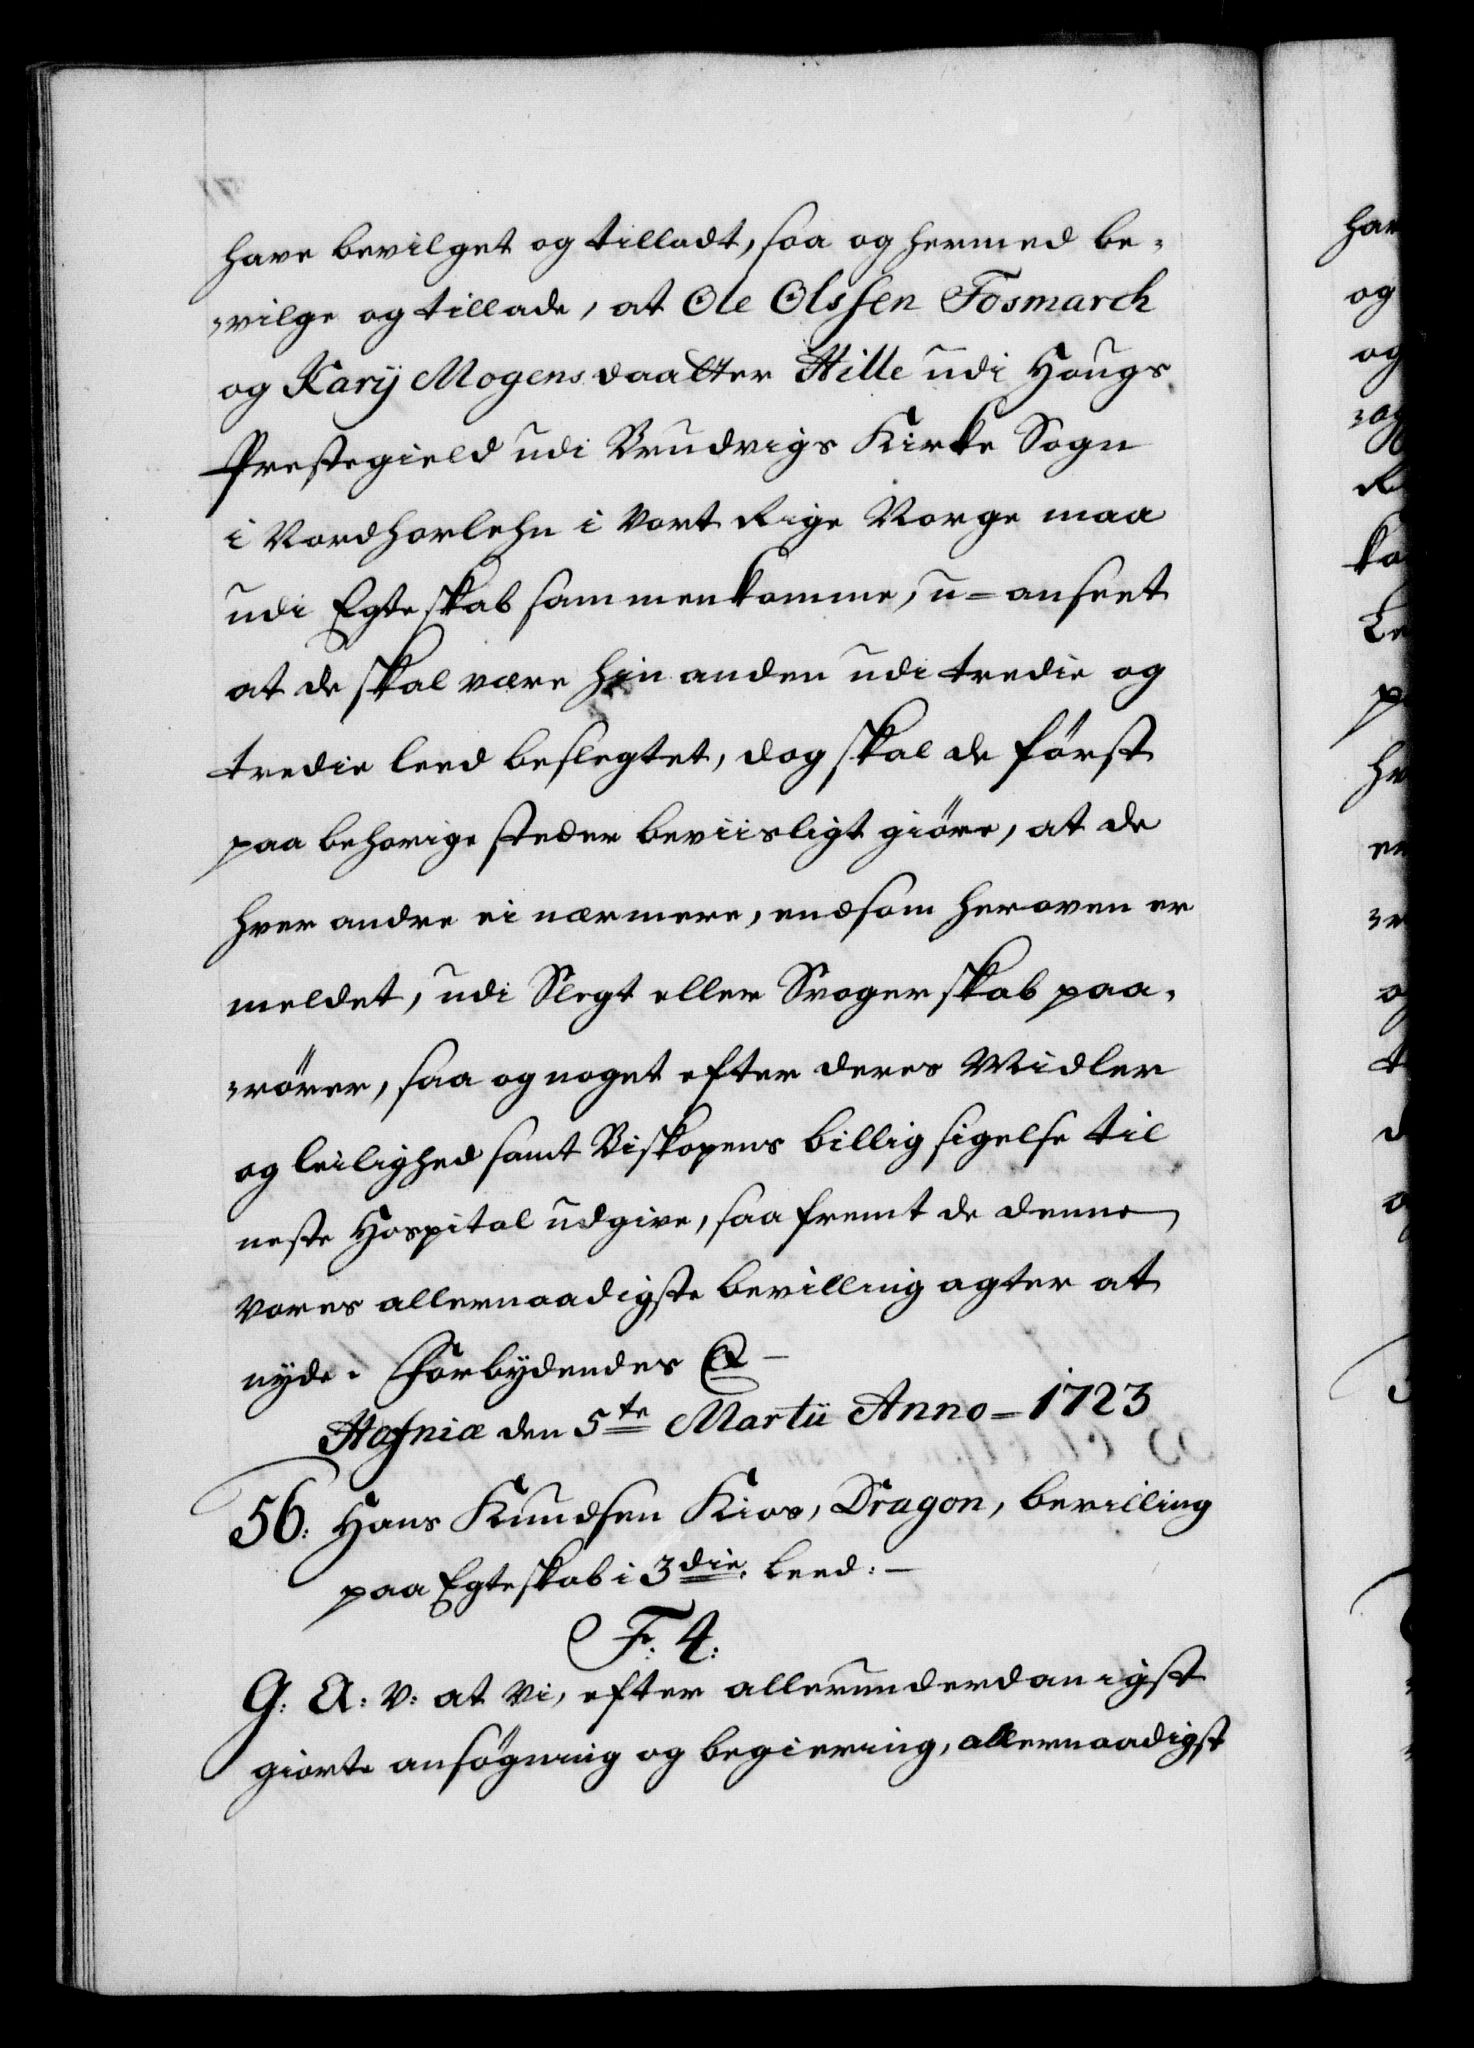 have bevilget og tilladt, saa og hermed be-
vilge og tillade, at Ole Olssen Fosmarch
og Karij Mogens daatter Hille udi Hougs
Prestegield udi Brudvigs Kirke Sogn
i Nordhorlehn i vort Rige Norge maa
udi Egteskab sammenkomme, u=anseet
at de skal være hin anden udi tredie og
tredie leed beslegtet, dog skal de först
paa behorige steder beviisligt giöre, at de
hver andre ei nærmere, end som heroven er
meldet, udi Slegt eller Svogerskab paa-
rörer, saa og noget efter deres Midler
og leilighed samt Biskopens billigsigelse til
neste Hospital udgive, saafremt de denne
vores allernaadigste bevilling agter at
nyde. Forbydendes &c
Hafniæ den 5te Martii Anno=1723
56: Hans Knudsen Kios, Dragon, bevilling
paa Egteskab i 3die leed:
Fr: 4:
G: A: V: at vi, efter allerunderdanigst
giorte ansøgning og begiering, allernaadigst